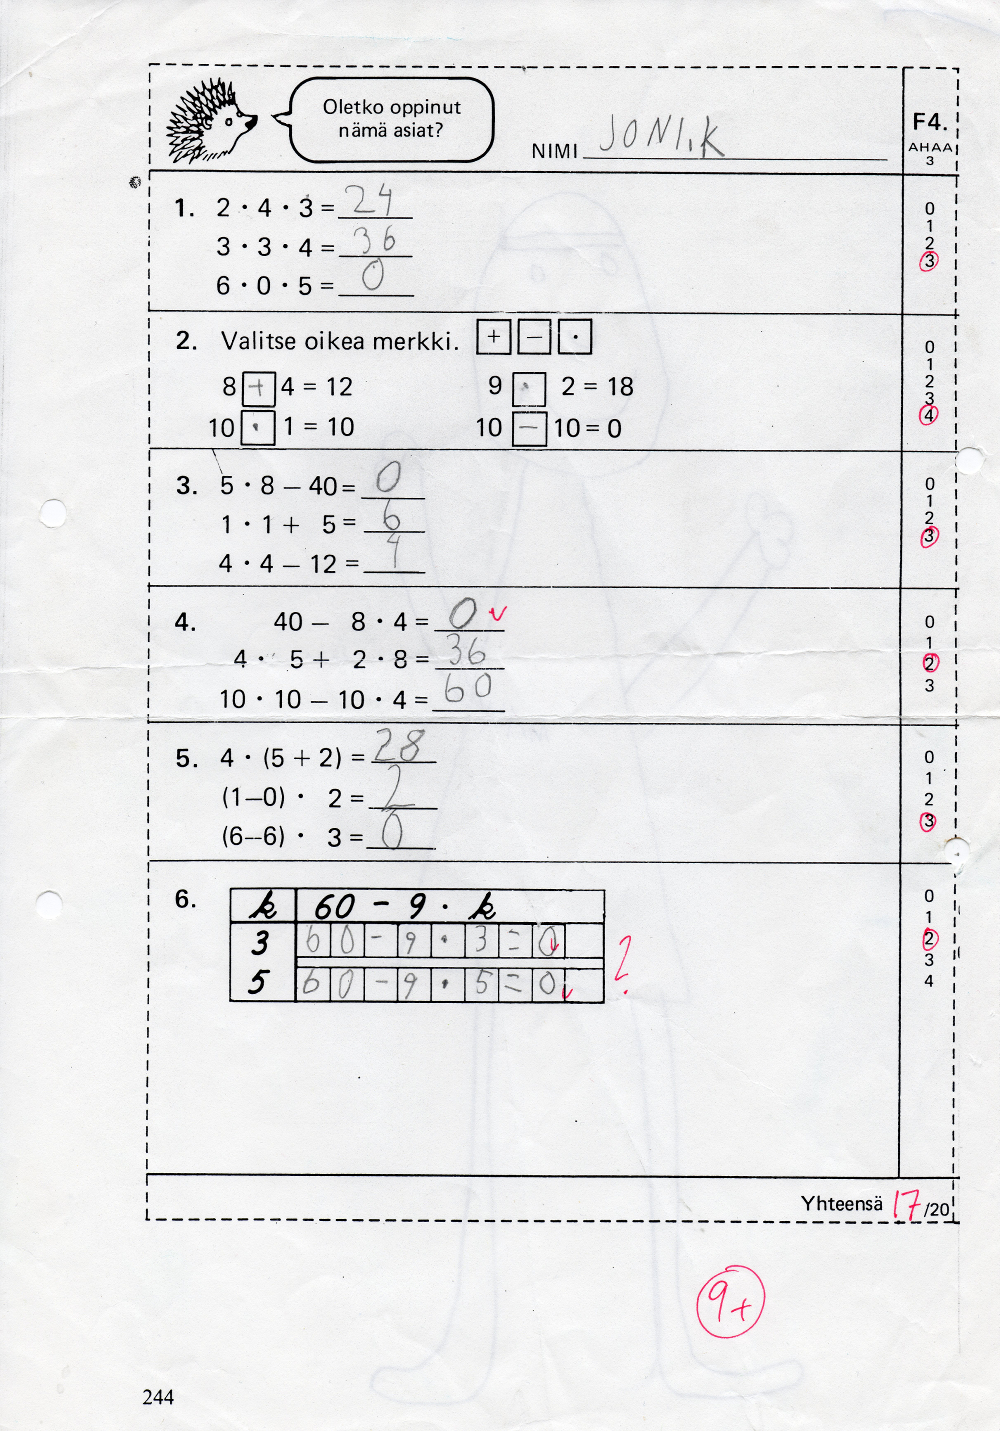 Oletko oppinut
nämä asiat?
NIMI JONI.K
F4.
AHAA
3
1. 2 · 4 · 3 = 24
3 · 3 · 4 = 36
6 · 0 · 5 = 0
0
1
2
3
2. Valitse oikea merkki. + − ·
8 + 4 = 12 9 · 2 = 18
10 · 1 = 10 10 − 10 = 0
0
1
2
3
4
3. 5 · 8 − 40 = 0
1 · 1 + 5 = 6
4 · 4 − 12 = 4
0
1
2
3
4. 40 − 8 · 4 = 0
4 · 5 + 2 · 8 = 36
10 · 10 − 10 · 4 = 60
0
1
2
3
5. 4 · (5 + 2) = 28
(1−0) · 2 = 2
(6−6) · 3 = 0
0
1
2
3
6. k 60 − 9 · k
3 60 − 9 · 3 = 0
5 60 − 9 · 5 = 0
?
0
1
2
3
4
Yhteensä 17/20
9+
244